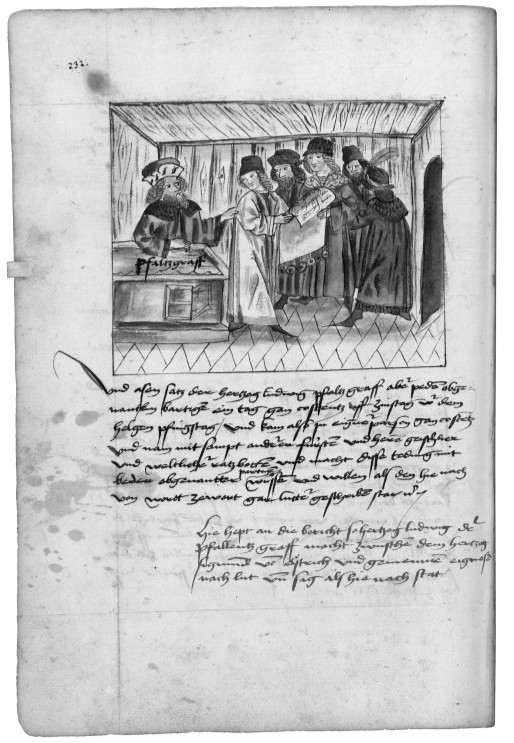 232.
Pfaltzgraff
Und also satz der hertzog ludwig pfaltz graff aber peden obge-
nantten partige ein tag gan costentz uff zinstag vor dem
helgen pfingstag und kam also in eigner person gan costetz
und nam mit sampt anderen fürsten und here geistlicher
und weltlicher ratzbotten und macht disse teding mit
beden obgenantten partige wüssen und willen als den hie nach
von wortt ze wort gar lutter geschriben stat
Hie hept an die bericht so hertzog ludwig der
Pfallentz graff macht zwüschen dem hertzog
Sigmund vo estrich und gemeinnen eignose
nach lut und sag als hie nach stat